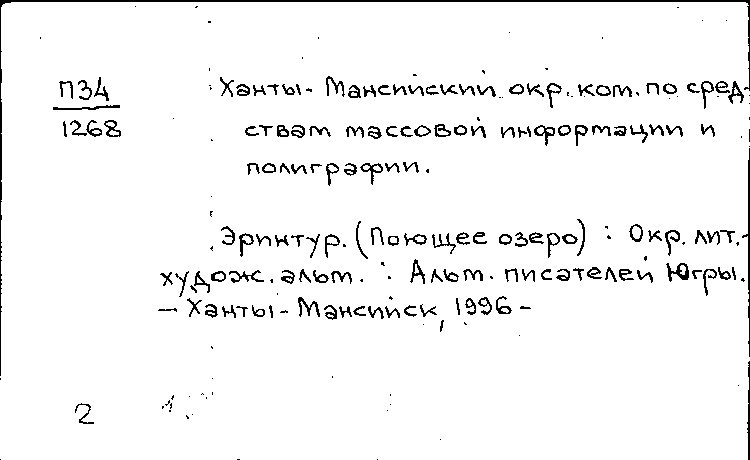 П34
1268
Ханты-Мансийский окр. ком. по сред-
ствам массовой информации и
полиграфии.
Эринтур. (Поющее озеро) : Окр. лит.-
худож. альм. : Альм. писателей Югры.
– Ханты-Мансийск, 1996 –
2